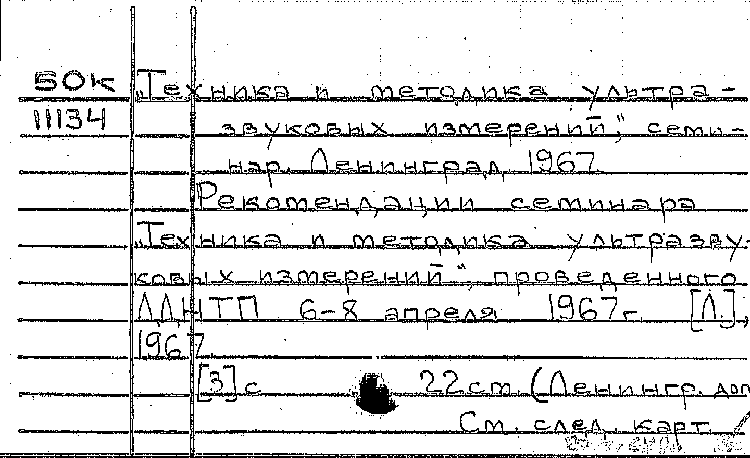 БОК „Техника и методика ультра-
11134 звуковых измерений", семи-
нар. Ленинград, 1967.
Рекомендации семинара
„Техника и методика ультразву-
ковых измерений", проведенного
ЛДНТП 6-8 апреля 1967г. [Л.],
1967.
[3] с 22 см. (Ленингр. дом
См. след. карт.